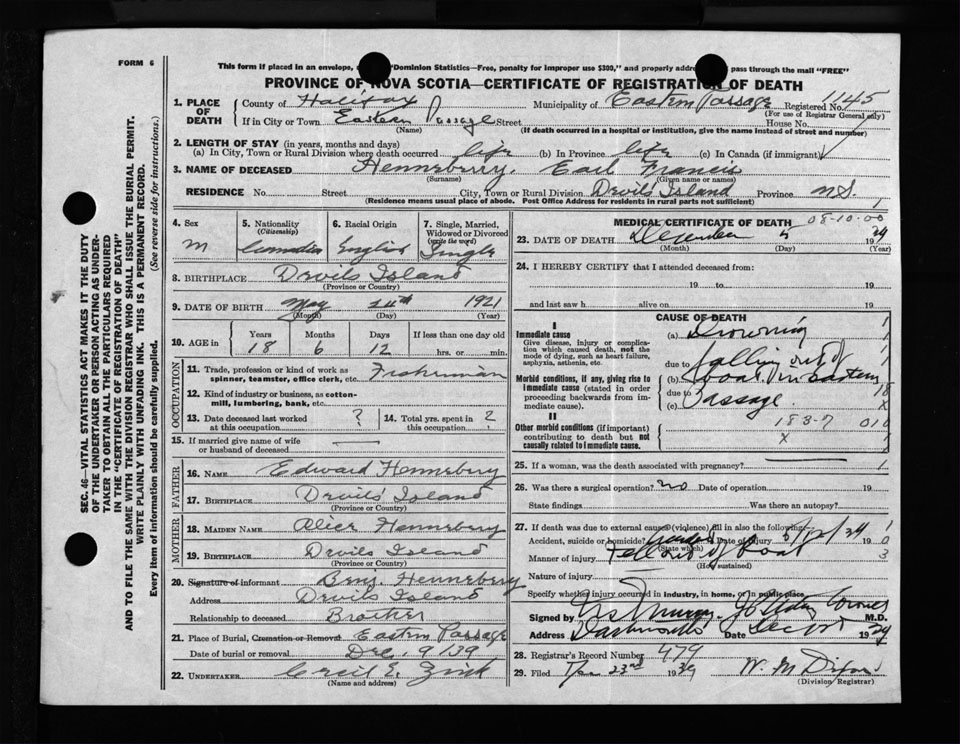 FORM 6
This form if placed in an envelope, "Dominion Statistics—Free, penalty for improper use $300," and properly addre pass through the mail "FREE"
PROVINCE OF NOVA SCOTIA—CERTIFICATE OF REGISTRATION OF DEATH
1. PLACE OF DEATH County of Halifax Municipality of Eastern Passage Registered No. 1145
(For use of Registrar General only)
If in City or Town Eastern Passage Street House No.
(Name) (If death occurred in a hospital or institution, give the name instead of street and number)
2. LENGTH OF STAY (in years, months and days)
(a) In City, Town or Rural Division where death occurred life (b) In Province life (c) In Canada (if immigrant)
3. NAME OF DECEASED Henneberry, Earl Francis
(Surname) (Given name or names)
RESIDENCE No. Street City, Town or Rural Division Devils Island Province N.S.
(Residence means usual place of abode. Post Office Address for residents in rural parts not sufficient) 1
4. Sex M
5. Nationality (Citizenship) Canadian
6. Racial Origin English
7. Single, Married, Widowed or Divorced (write the word) Single
8. BIRTHPLACE Devils Island
(Province or Country)
9. DATE OF BIRTH May 24th 1921
(Month) (Day) (Year)
10. AGE in Years 18 Months 6 Days 12 If less than one day old hrs. or min.
OCCUPATION
11. Trade, profession or kind of work as spinner, teamster, office clerk, etc. Fisherman
12. Kind of industry or business, as cotton-mill, lumbering, bank, etc.
13. Date deceased last worked at this occupation ?
14. Total yrs. spent in this occupation ?
15. If married give name of wife or husband of deceased
FATHER
16. NAME Edward Henneberry
17. BIRTHPLACE Devils Island
(Province or Country)
MOTHER
18. MAIDEN NAME Alice Henneberry
19. BIRTHPLACE Devils Island
(Province or Country)
20. Signature of informant Benj. Henneberry
Address Devils Island
Relationship to deceased Brother
21. Place of Burial, Cremation or Removal Eastern Passage
Date of burial or removal Dec. 9/39
22. UNDERTAKER Cecil E. Zink
(Name and address)
MEDICAL CERTIFICATE OF DEATH 08-10-00
23. DATE OF DEATH December 5 1939
(Month) (Day) (Year)
24. I HEREBY CERTIFY that I attended deceased from:
19 to 19
and last saw h alive on 19
CAUSE OF DEATH
I
Immediate cause
Give disease, injury or complication which caused death, not the mode of dying, such as heart failure, asphyxia, asthenia, etc.
(a) Drowning
due to falling out of
Morbid conditions, if any, giving rise to immediate cause (stated in order proceeding backwards from immediate cause).
(b) boat in Eastern
due to
(c) Passage
II
Other morbid conditions (if important) contributing to death but not causally related to immediate cause.
183-7 010
x 1
25. If a woman, was the death associated with pregnancy? 1
26. Was there a surgical operation? no Date of operation 19
State findings Was there an autopsy?
27. If death was due to external causes (violence) fill in also the following:
Accident, suicide or homicide? Date of injury 19
(State which)
Manner of injury Fell out of boat
(How sustained)
Nature of injury
Specify whether injury occurred in industry, in home, or in public place
Signed by Murray Coroner M.D.
Address Dartmouth Date Dec 1939
28. Registrar's Record Number 479
29. Filed 23rd 1939 W. M.
(Division Registrar)
SEC. 46—VITAL STATISTICS ACT MAKES IT THE DUTY
OF THE UNDERTAKER OR PERSON ACTING AS UNDER-
TAKER TO OBTAIN ALL THE PARTICULARS REQUIRED
IN THE "CERTIFICATE OF REGISTRATION OF DEATH"
AND TO FILE THE SAME WITH THE DIVISION REGISTRAR WHO SHALL ISSUE THE BURIAL PERMIT.
WRITE PLAINLY WITH UNFADING INK. THIS IS A PERMANENT RECORD.
Every item of information should be carefully supplied. (See reverse side for instructions).